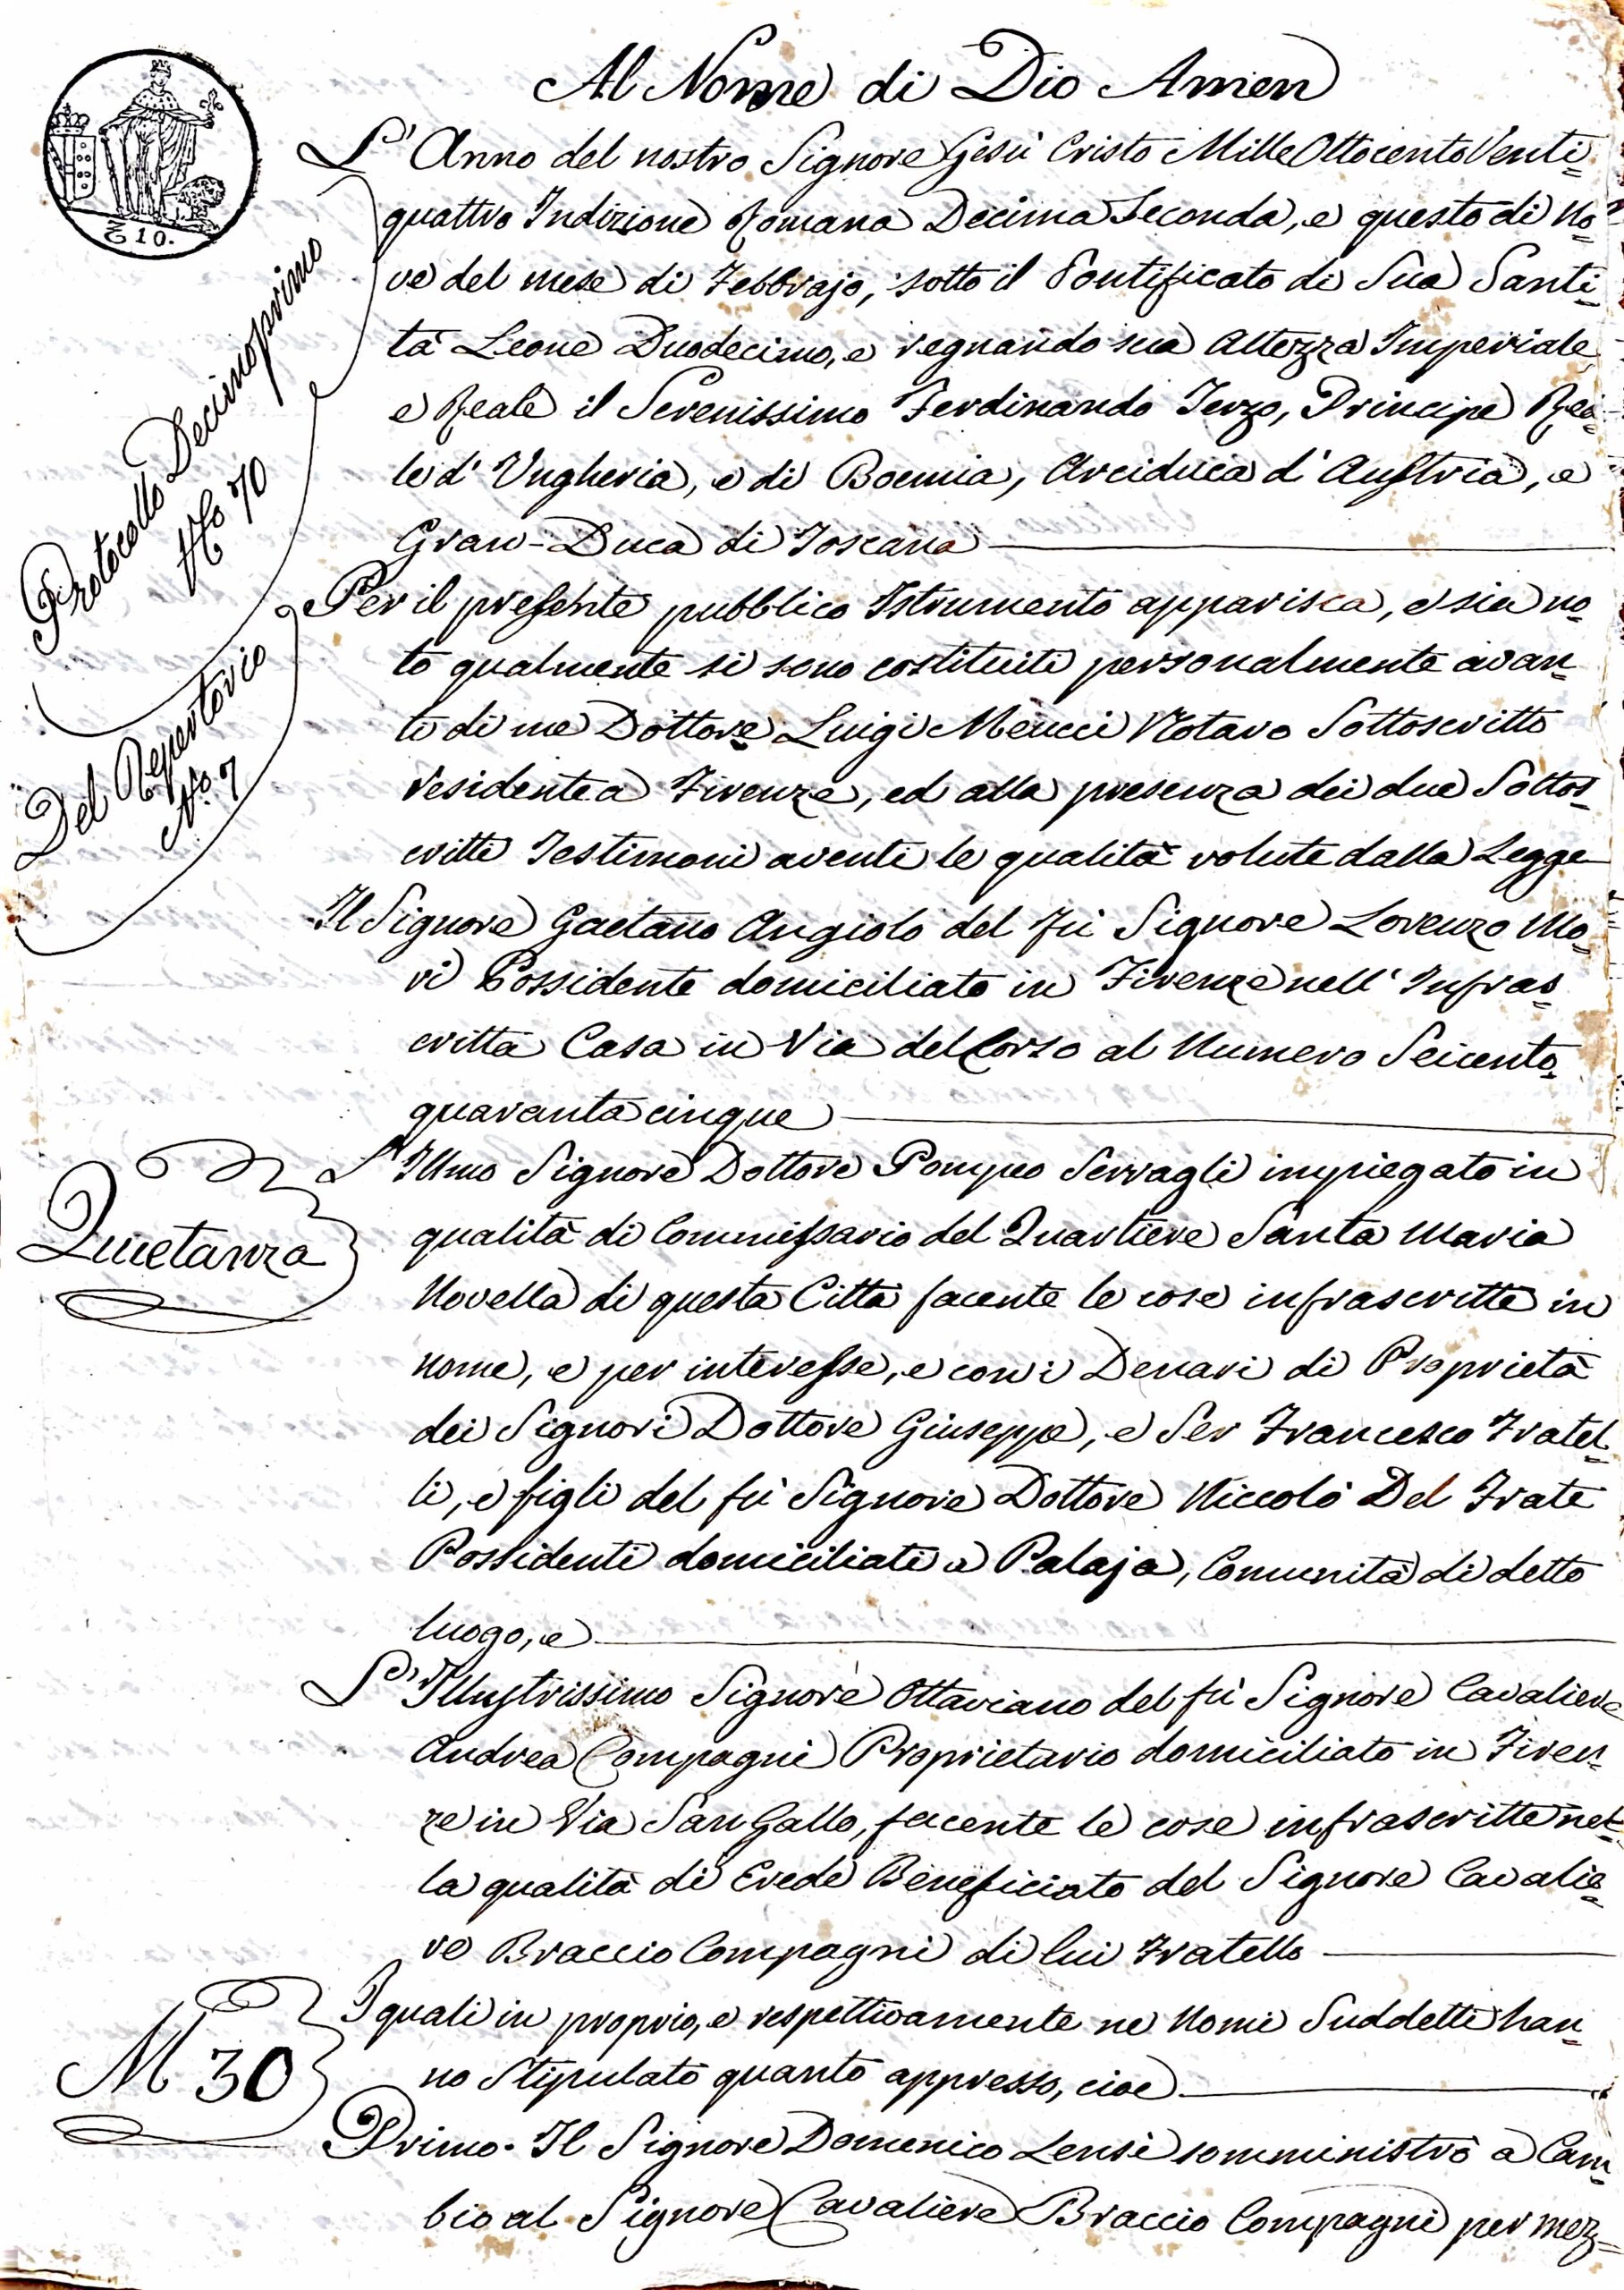 Al Nome di Dio Amen
L'Anno del nostro Signore Gesù Cristo Mille Ottocento Venti=
quattro Indizione Romana Decima Seconda, e questo di No=
ve del mese di Febbrajo, sotto il Pontificato di Sua Santi=
tà Leone Duodecimo, e regnando sua Altezza Imperiale
e Reale il Serenissimo Ferdinando Terzo, Principe Rea=
le d'Ungheria, e di Boemia, Arciduca d'Austria, e
Gran-Duca di Toscana
Protocollo Decimoprimo
No 70
Per il presente pubblico Istrumento apparisca, e sia no=
to qualmente si sono costituiti personalmente avan=
ti di me Dottore Luigi Meucci Notaro Sottoscritto
residente a Firenze, ed alla presenza dei due Sottos=
critti Testimoni aventi le qualità volute dalla Legge
Del Repertorio
No. 7
Il Signore Gaetano Angiolo del fù Signore Lorenzo Mo=
ri Possidente domiciliato in Firenze nell'Infras=
critta Casa in Via del Corso al Numero Seicento=
quaranta cinque
Quietanza
L'Illmo Signore Dottore Pompeo Serragli impiegato in
qualità di Commissario del Quartiere Santa Maria
Novella di questa Città facente le cose infrascritte in
nome, e per interesse, e con i Denari di Proprietà
dei Signori Dottore Giuseppe, e Ser Francesco Fratel=
li, e figli del fù Signore Dottore Niccolò Del Frate
Possidenti domiciliati a Palaja, Comunità di detto
luogo, e
L'Illustrissimo Signore Ottaviano del fù Signore Cavaliere
Andrea Compagni Proprietario domiciliato in Firen=
ze in Via San Gallo, facente le cose infrascritte nel=
la qualità di Erede Beneficiato del Signore Cavalie=
re Braccio Compagni di lui Fratello
M 30
I quali in proprio, e respettivamente ne Nomi Suddetti han=
no Stipulato quanto appresso, cioe
Primo. Il Signore Domenico Lensi somministrò a Cam=
bio al Signore Cavaliere Braccio Compagni per mez=